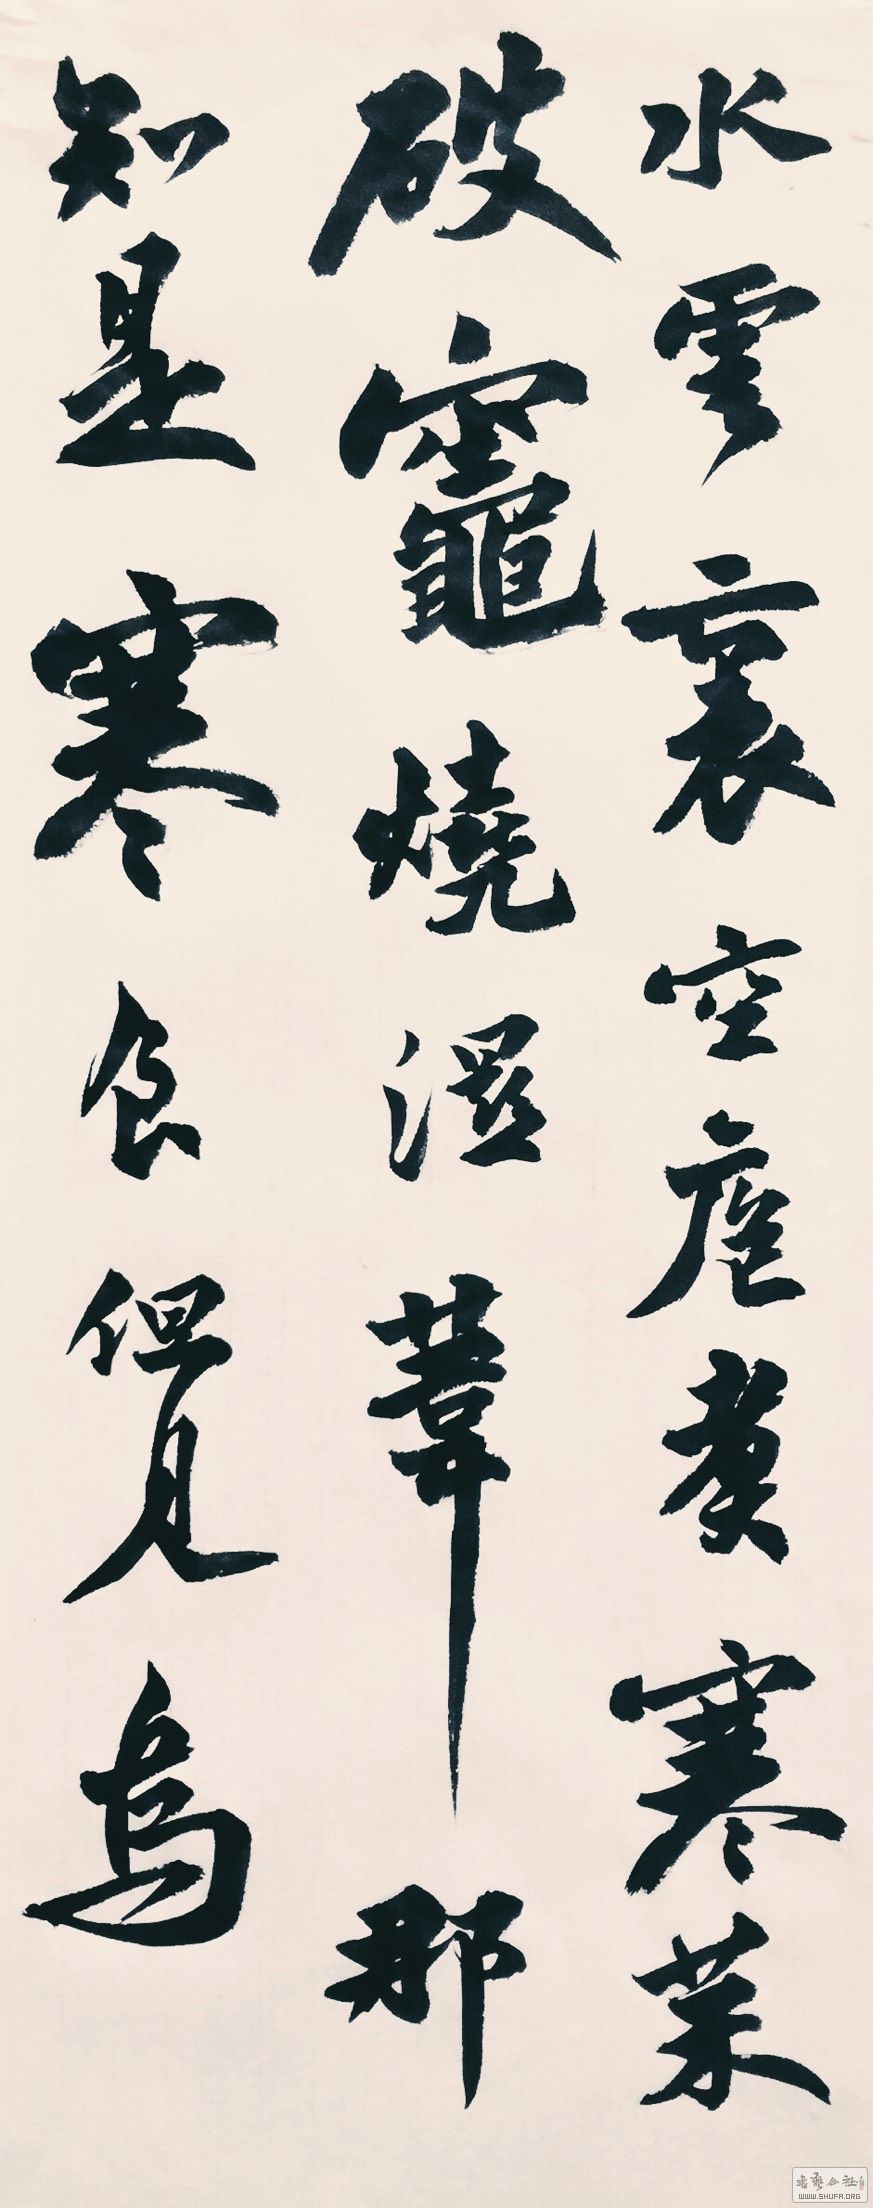 水雲裏空庖煑寒菜
破竈燒濕葦那
知是寒食但見烏
書藝公社
WWW.SHUFA.ORG